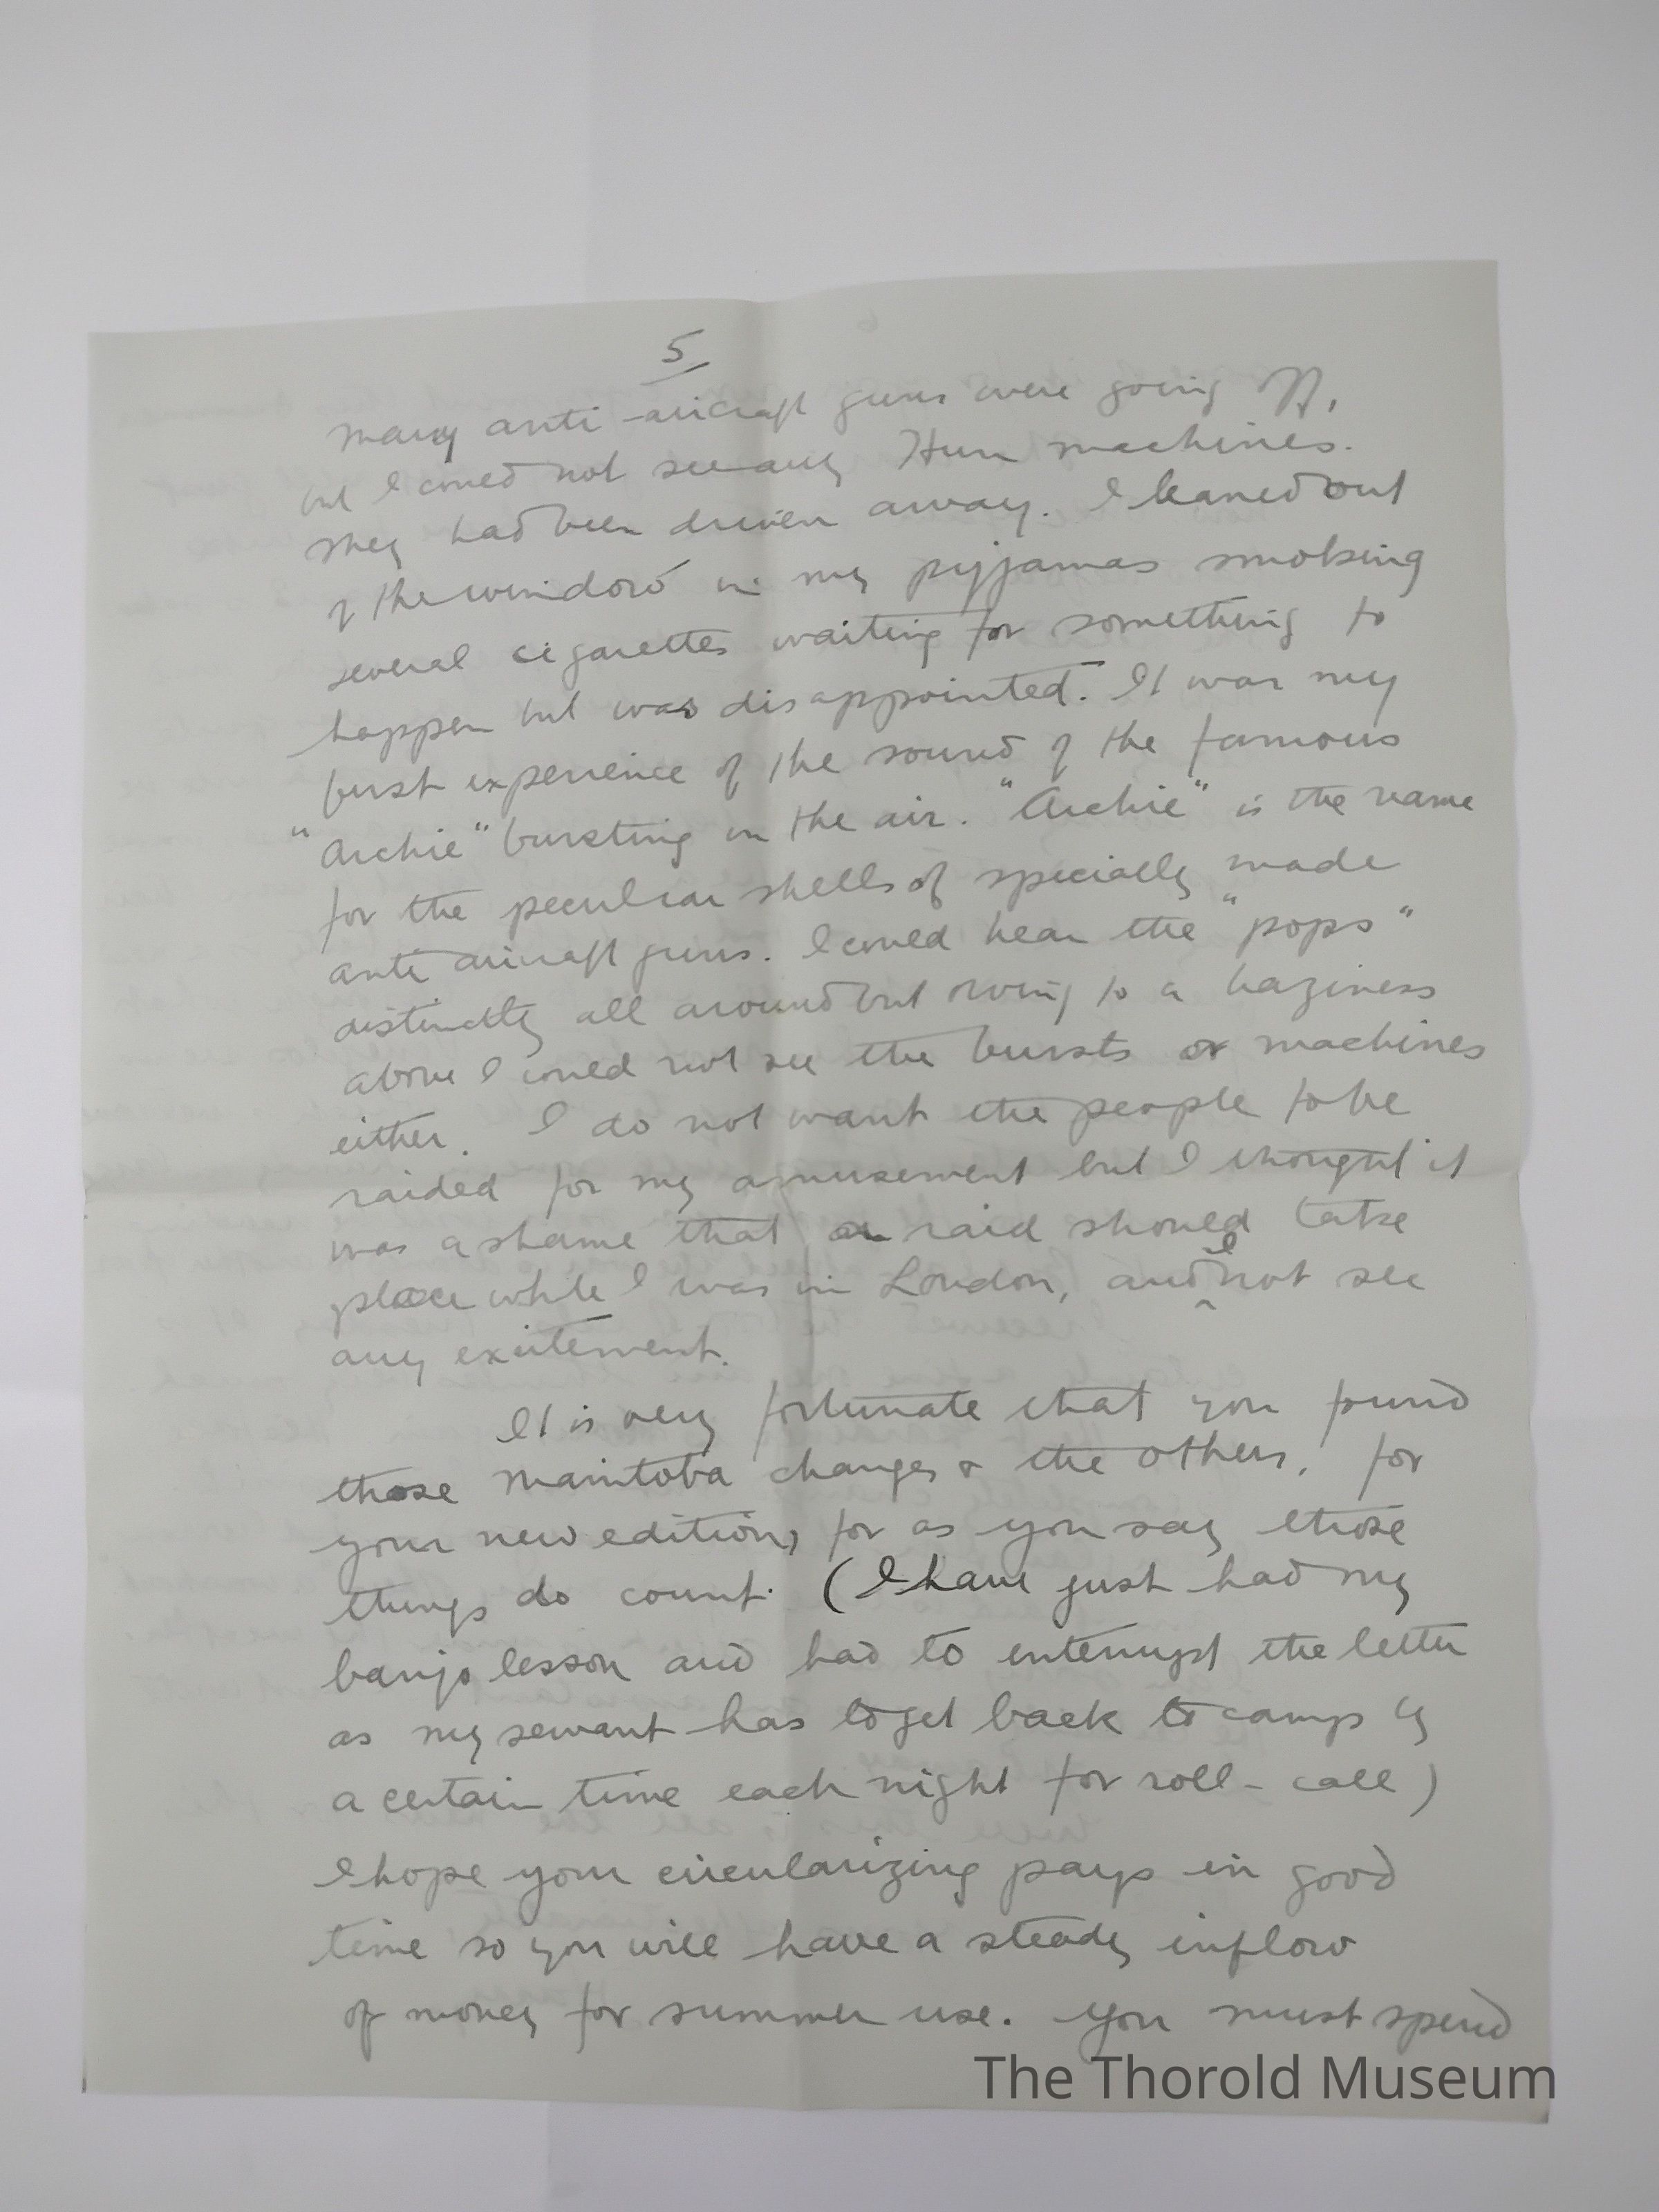 5
many anti-aircraft guns were going off,
but I could not see any Hun machines.
They had been driven away. I leaned out
of the window in my pyjamas smoking
several cigarettes waiting for something to
happen but was disappointed. It was my
first experience of the sound of the famous
"Archie" bursting in the air. "Archie" is the name
for the peculiar shells of specially made
anti aircraft guns. I could hear the "pops"
distinctly all around but owing to a haziness
above I could not see the bursts or machines
either. I do not want the people to be
raided for my amusement but I thought it
was a shame that a raid should take
place while I was in London, and I not see
any excitement.
It is very fortunate that you found
those Manitoba changes & the others, for
your new edition, for as you say those
things do count. (I have just had my
banjo lesson and had to interrupt the letter
as my servant has to get back to camp by
a certain time each night for roll-call)
I hope your circularizing pays in good
time so you will have a steady inflow
of money for summer use. You must spend
The Thorold Museum